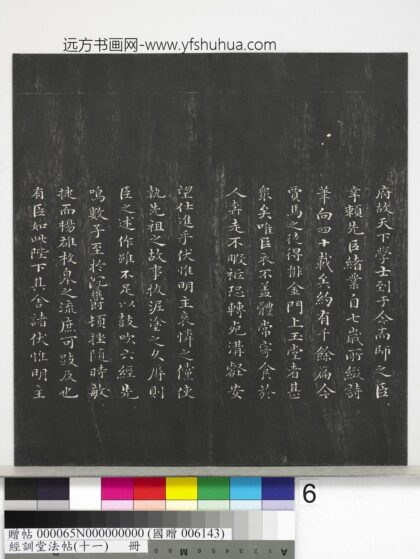 远方书画网-www.yfshuhua.com
府故天下學士到于今而師之臣
幸賴先臣緒業自七歲所綴詩
筆向四十載矣約有千餘篇今
賈馬之徒得排金門上玉堂者甚
衆矣唯臣衣不盖體常寄食於
人奔走不暇秪恐轉死溝壑安
望仕進乎伏惟明主哀憐之儻使
執先祖之故事拔泥塗之久辱則
臣之述作雖不足以鼓吹六經先
鳴數子至於沉鬱頓挫隨時敏
捷而楊雄枚皋之流庶可跂及也
有臣如此陛下其舍諸伏惟明主
6
贈帖 000065N000000000 (國贈 006143)
經訓堂法帖(十一) 冊